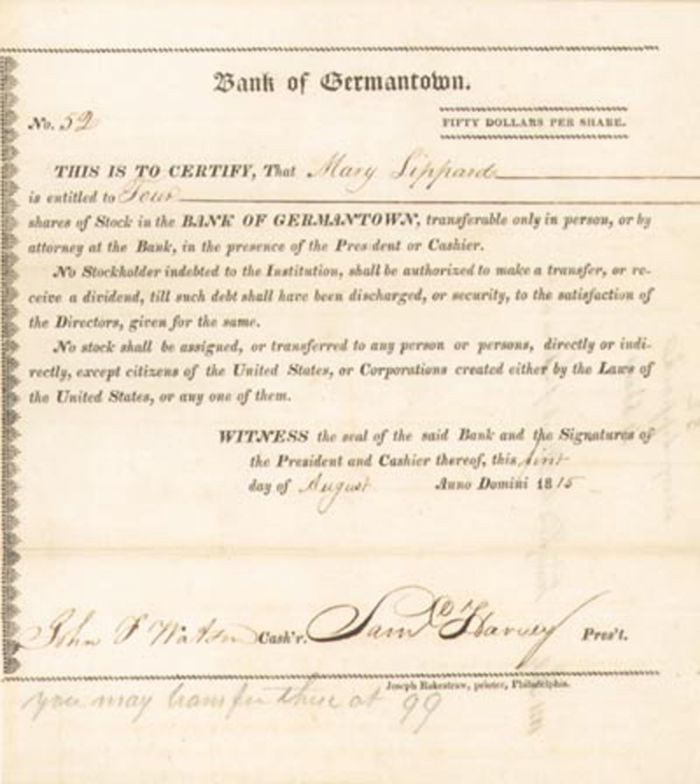 Bank of Germantown.
No. 52
FIFTY DOLLARS PER SHARE.
THIS IS TO CERTIFY, That Mary Lippard
is entitled to Four
shares of Stock in the BANK OF GERMANTOWN, transferable only in person, or by
attorney at the Bank, in the presence of the Pres dent or Cashier.
No Stockholder indebted to the Institution, shall be authorized to make a transfer, or re-
ceive a dividend, till such debt shall have been discharged, or security, to the satisfaction of
the Directors, given for the same.
No stock shall be assigned, or transferred to any person or persons, directly or indi-
rectly, except citizens of the United States, or Corporations created either by the Laws of
the United States, or any one of them.
WITNESS the seal of the said Bank and the Signatures of
the President and Cashier thereof, this first
day of August Anno Domini 1815
John F Watson Cash'r. Saml Harvey Pres't.
Joseph Rakestraw, printer, Philadelphia.
you may transfer these at 99